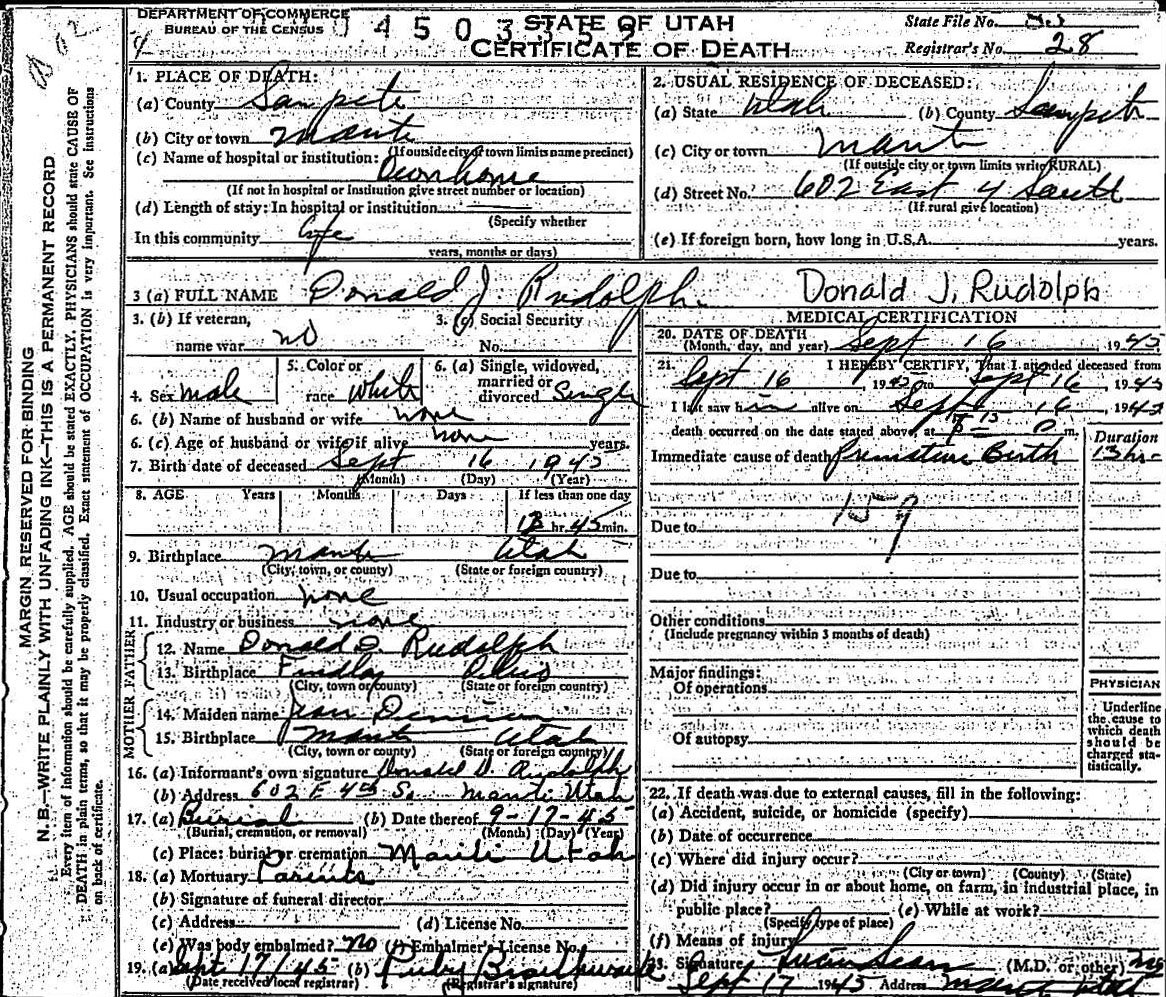 DEPARTMENT OF COMMERCE
BUREAU OF THE CENSUS
STATE OF UTAH
CERTIFICATE OF DEATH
State File No.
Registrar's No. 28
MARGIN RESERVED FOR BINDING
N. B.—WRITE PLAINLY WITH UNFADING INK—THIS IS A PERMANENT RECORD
Every item of information should be carefully supplied. AGE should be stated EXACTLY. PHYSICIANS should state CAUSE OF
DEATH in plain terms, so that it may be properly classified. Exact statement of OCCUPATION is very important. See instructions
on back of certificate.
1. PLACE OF DEATH:
(a) County Sanpete
(b) City or town Manti
(If outside city or town limits name precinct)
(c) Name of hospital or institution:
Own home
(If not in hospital or institution give street number or location)
(d) Length of stay: In hospital or institution
(Specify whether
In this community life
years, months or days)
2. USUAL RESIDENCE OF DECEASED:
(a) State Utah (b) County Sanpete
(c) City or town Manti
(If outside city or town limits write RURAL)
(d) Street No. 602 East 4 South
(If rural give location)
(e) If foreign born, how long in U.S.A. years.
3 (a) FULL NAME Donald J. Rudolph. Donald J. Rudolph
3. (b) If veteran,
name war no
3. (c) Social Security
No.
4. Sex male
5. Color or
race White
6. (a) Single, widowed,
married or
divorced Single
6. (b) Name of husband or wife none
6. (c) Age of husband or wife if alive none years.
7. Birth date of deceased Sept 16 1945
(Month) (Day) (Year)
8. AGE Years Months Days If less than one day
13 hr. 45 min.
9. Birthplace Manti Utah
(City, town, or county) (State or foreign country)
10. Usual occupation none
11. Industry or business none
FATHER
12. Name Donald D. Rudolph
13. Birthplace Findlay Ohio
(City, town or county) (State or foreign country)
MOTHER
14. Maiden name Jean
15. Birthplace Manti Utah
(City, town or county) (State or foreign country)
16. (a) Informant's own signature Donald D. Rudolph
(b) Address 602 E 4th So. Manti Utah
17. (a) Burial (b) Date thereof 9-17-45
(Burial, cremation, or removal) (Month) (Day) (Year)
(c) Place: burial or cremation Manti Utah
18. (a) Mortuary Parents
(b) Signature of funeral director
(c) Address (d) License No.
(e) Was body embalmed? No (f) Embalmer's License No.
19. (a) Sept 17/45 (b) Ruby Braithwaite
(Date received local registrar) (Registrar's signature)
MEDICAL CERTIFICATION
20. DATE OF DEATH
(Month, day, and year) Sept 16 1945
21. I HEREBY CERTIFY, That I attended deceased from
Sept 16, 1945 to Sept 16, 1945
I last saw him alive on Sept 16, 1945
death occurred on the date stated above, at m.
Duration
Immediate cause of death Premature Birth 13 hr
159
Due to
Due to
Other conditions
(Include pregnancy within 3 months of death)
Major findings:
Of operations
Of autopsy
PHYSICIAN
Underline
the cause to
which death
should be
charged sta-
tistically.
22. If death was due to external causes, fill in the following:
(a) Accident, suicide, or homicide (specify)
(b) Date of occurrence
(c) Where did injury occur?
(City or town) (County) (State)
(d) Did injury occur in or about home, on farm, in industrial place, in
public place? (e) While at work?
(Specify type of place)
(f) Means of injury
23. Signature (M.D. or other) MD
Sept 17 1945 Address Manti Utah